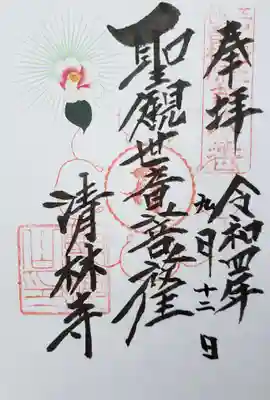 奉拝
令和四年
九月十二日
聖観世音菩薩
清林寺